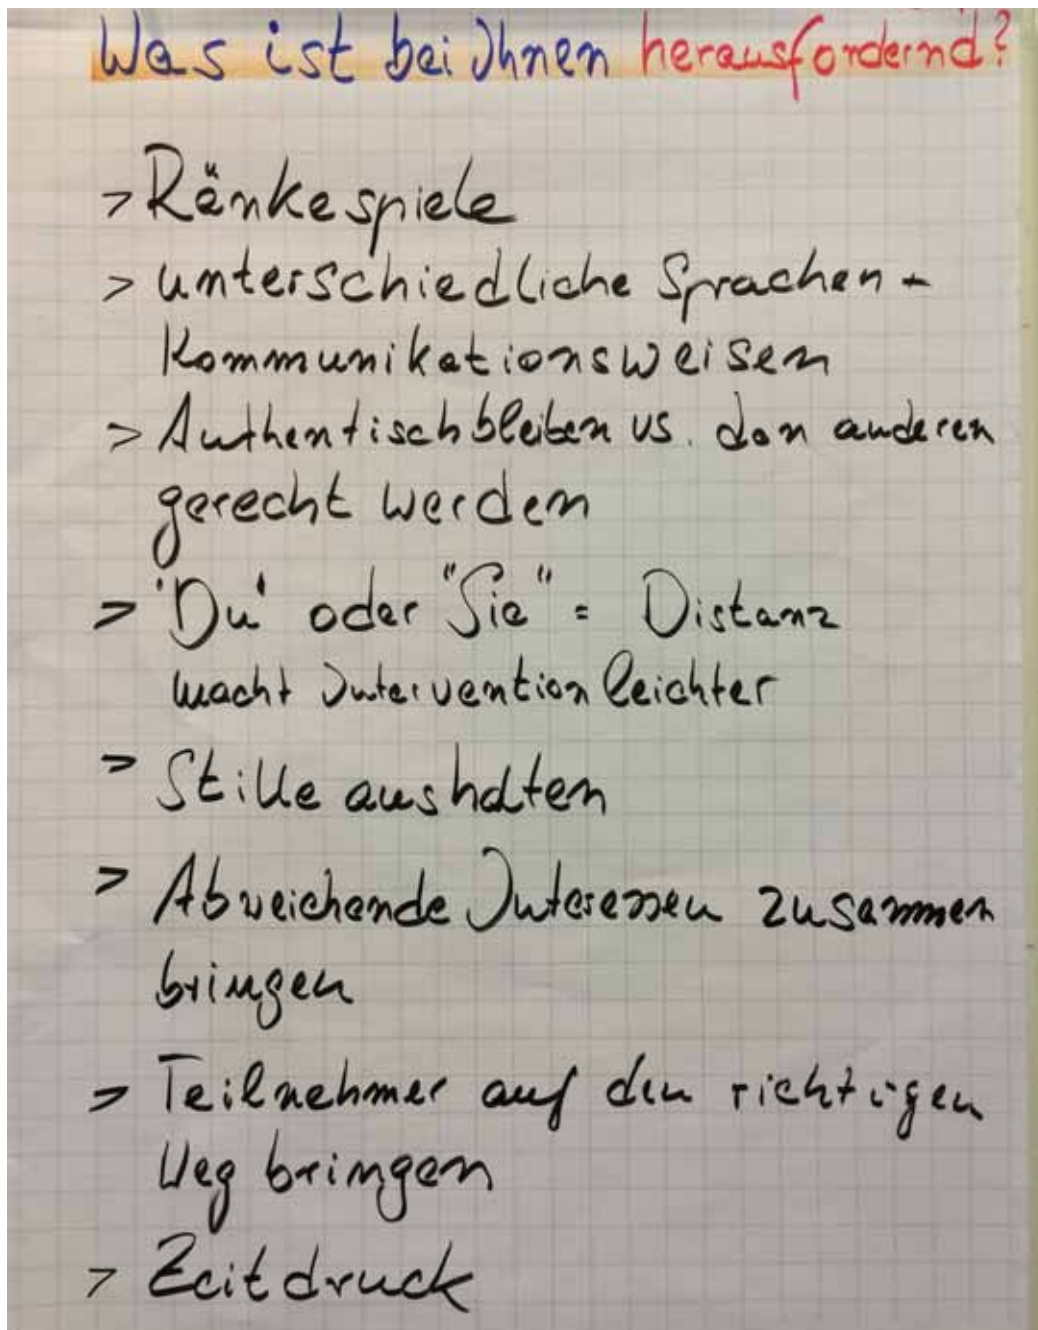 Was ist bei Ihnen herausfordernd?
> Ränkespiele
> unterschiedliche Sprachen -
Kommunikationsweisen
> Authentischbleiben vs. den anderen
gerecht werden
> 'Du' oder "Sie" = Distanz
macht Intervention leichter
> Stille aushalten
> Abweichende Interessen zusammen
bringen
> Teilnehmer auf den richtigen
Weg bringen
> Zeitdruck